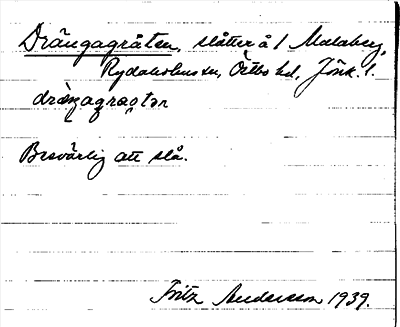 Drängagråten, slåtter å 1 Malaberg,
Rydaholms sn, Östbo hd, Jönk. l.
dräŋagråtən
Besvärlig att slå.
Fritz Andersson 1939.